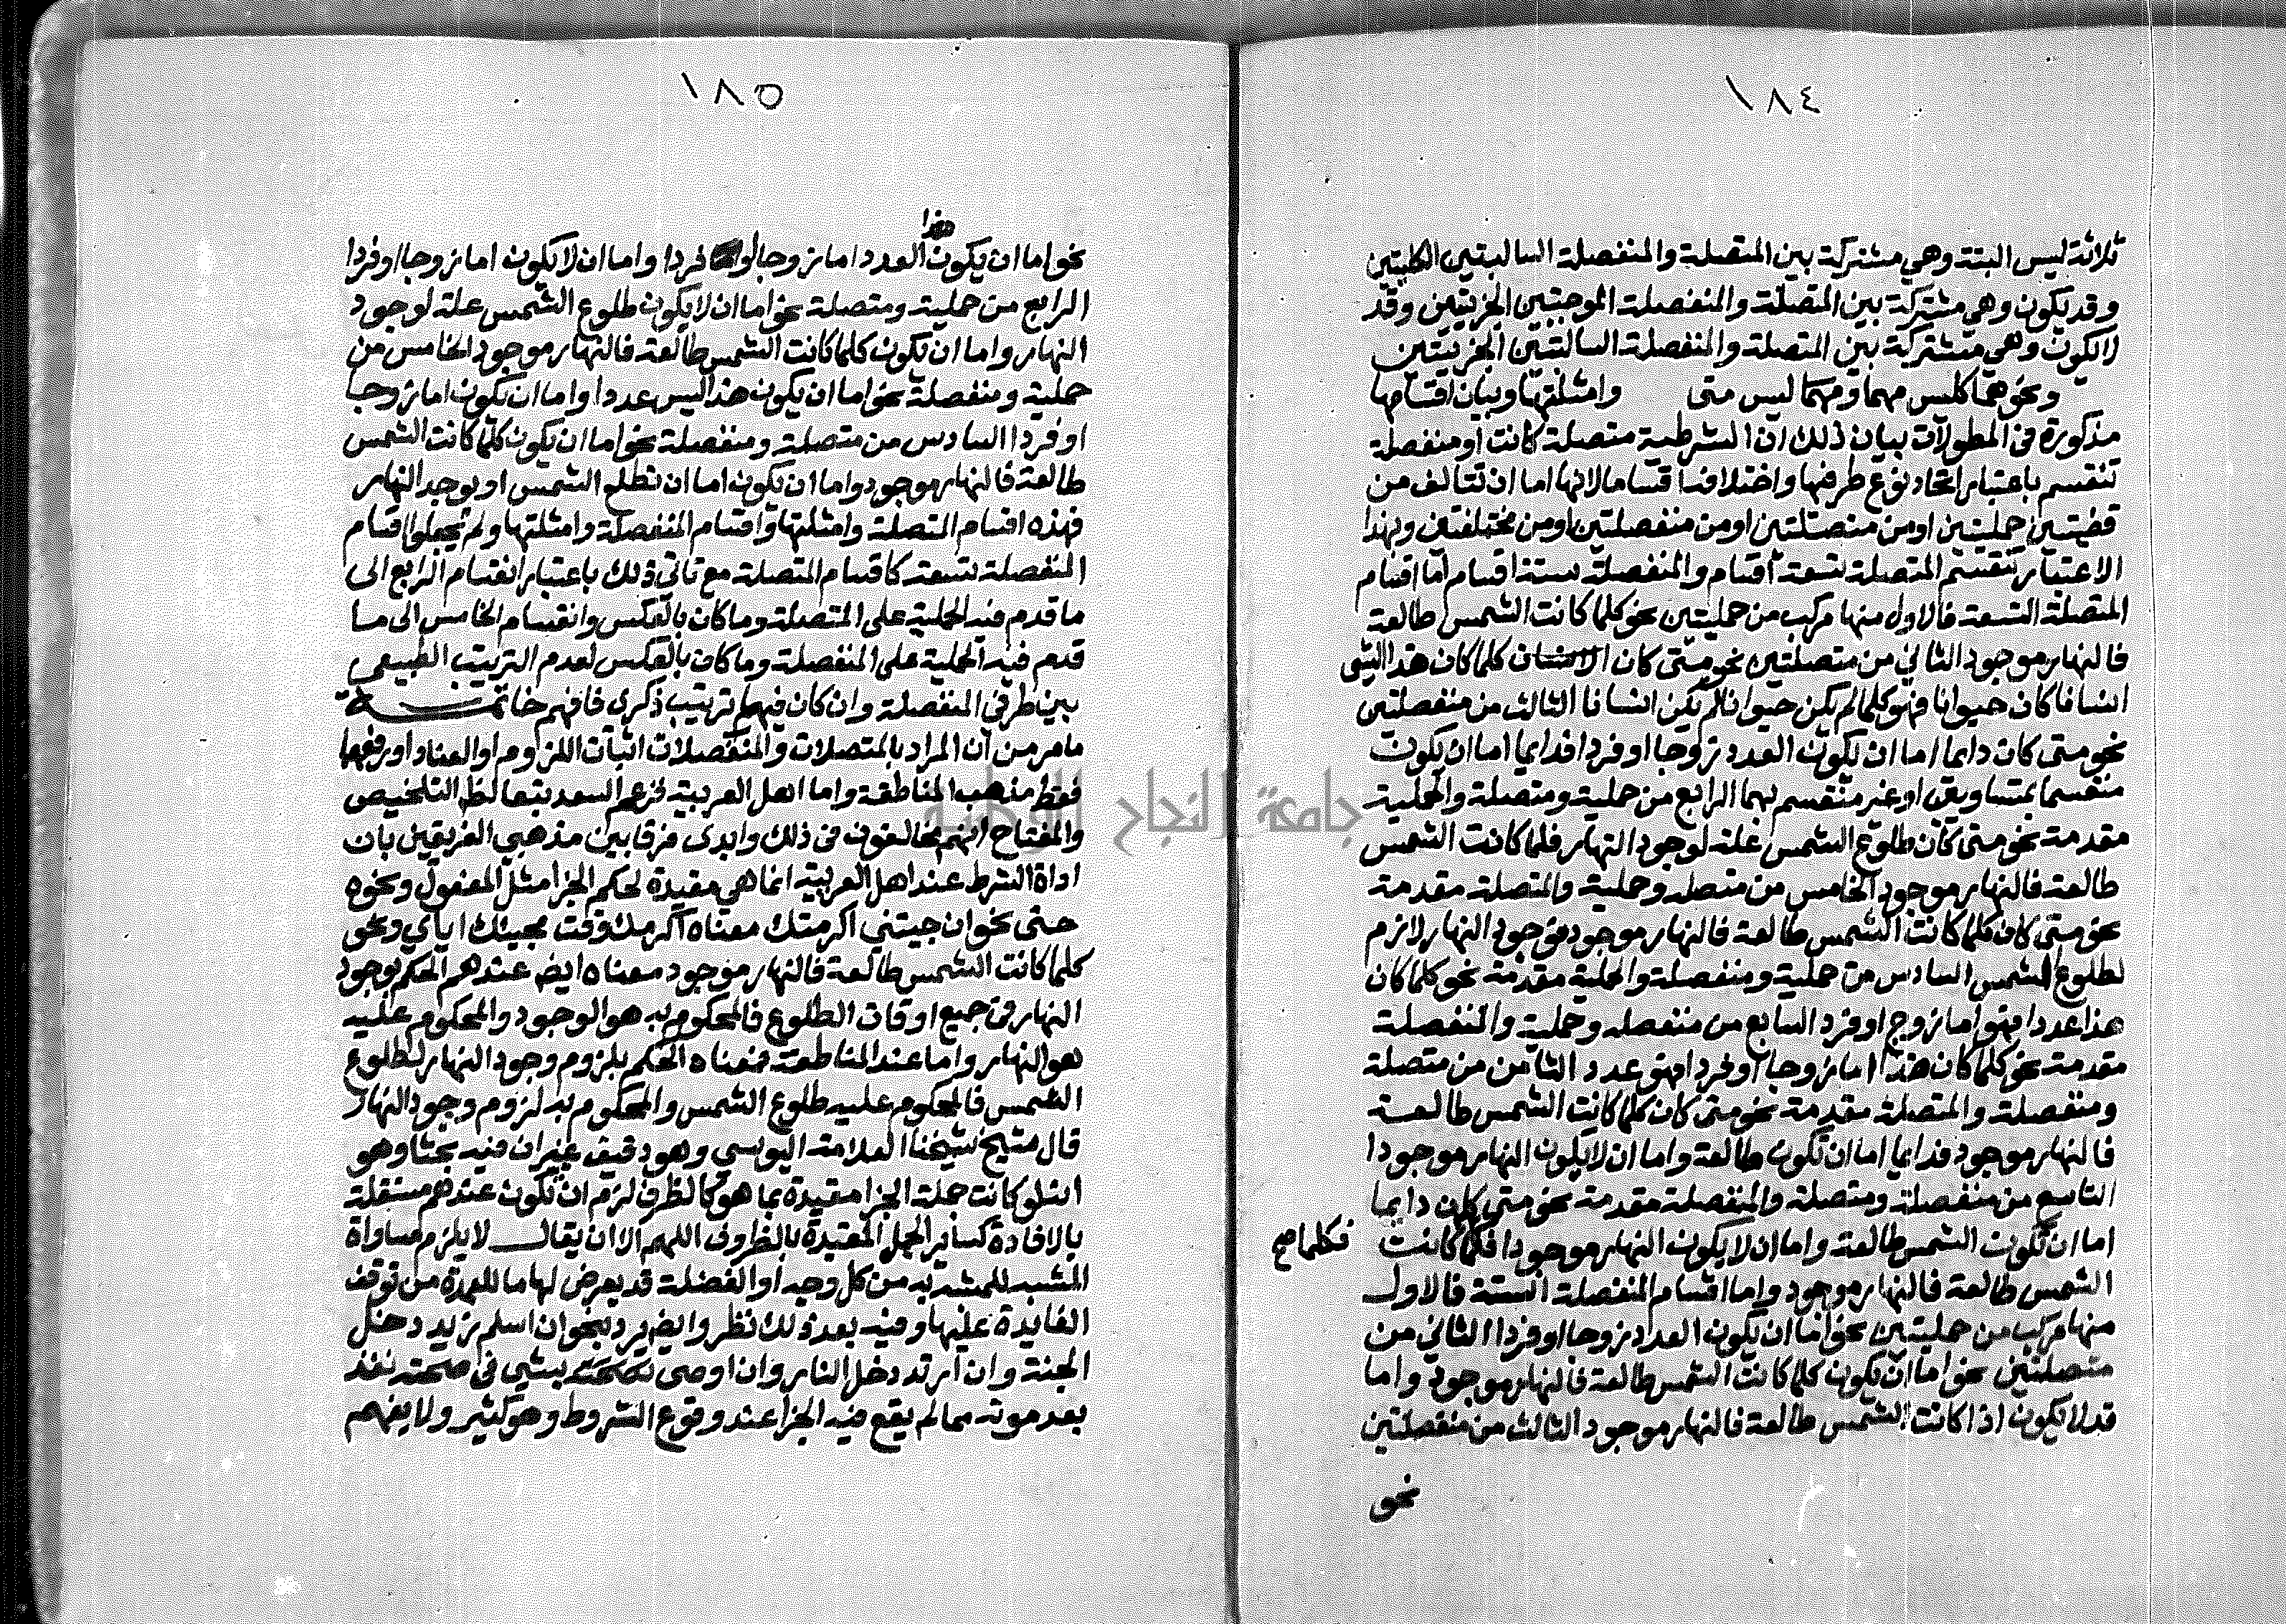 ١٨٤
ثلاثة ليس البتة وهي مشتركة بين المتصلة والمنفصلة السالبتين الكليتين
وقد يكون وهي مشتركة بين المتصلة والمنفصلة الموجبتين الجزئيتين وقد
لا يكون وهي مشتركة بين المتصلة والمنفصلة السالبتين الجزئيتين
ونحوهما كليس مهما ومهما ليس متى وامثلتها وبيان اقسامها
مذكورة في المطولات بيان ذلك ان الشرطية متصلة كانت او منفصلة
تنقسم باعتبار اتحاد نوع طرفيها واختلافه اقساما لانها اما ان تتالف من
قضيتين حمليتين او من متصلتين او من منفصلتين او من مختلفتين وبهذا
الاعتبار تنقسم المتصلة تسعة اقسام والمنفصلة ستة اقسام اما اقسام
المتصلة التسعة فالاول منها مركب من حمليتين نحو كلما كانت الشمس طالعة
فالنهار موجود الثاني من متصلتين نحو متى كان كلما كان هذا الشي
انسانا كان حيوانا فهو كلما لم يكن حيوانا لم يكن انسانا الثالث من منفصلتين
نحو متى كان دايما اما ان يكون العدد زوجا او فردا فدايما اما ان يكون
منقسما بمتساويين او غير منقسم بهما الرابع من حملية ومتصلة والحملية
مقدمة نحو متى كان طلوع الشمس علة لوجود النهار فلما كانت الشمس
طالعة فالنهار موجود الخامس من متصله وحملية والمتصلة مقدمة
نحو متى كان كلما كانت الشمس طالعة فالنهار موجود فوجود النهار لازم
لطلوع الشمس السادس من حملية ومنفصلة والحملية مقدمة نحو كلما كان
هذا عددا فهو اما زوج او فرد السابع من منفصله وحملية والمنفصلة
مقدمة نحو كلما كان هذا اما زوجا او فردا فهو عدد الثامن من متصلة
ومنفصلة والمتصلة مقدمة نحو متى كان كلما كانت الشمس طالعة
فالنهار موجود فدايما اما ان تكون طالعة واما ان لا يكون النهار موجودا
التاسع من منفصلة ومتصلة والمنفصلة مقدمة نحو متى كان دايما
اما ان تكون الشمس طالعة واما ان لا يكون النهار موجودا فكلما كانت
فكلما صح
الشمس طالعة فالنهار موجود واما اقسام المنفصلة الستة فالاول
منها مركب من حمليتين نحو اما ان يكون العدد زوجا او فردا الثاني من
متصلتين نحو اما ان يكون كلما كانت الشمس طالعة فالنهار موجود واما
قد لا يكون اذا كانت الشمس طالعة فالنهار موجود الثالث من منفصلتين
نحو
١٨٥
هذا
نحو اما ان يكون العدد اما زوجا او فردا واما ان لا يكون اما زوجا او فردا
الرابع من حملية ومتصلة نحو اما ان لا يكون طلوع الشمس علة لوجود
النهار واما ان يكون كلما كانت الشمس طالعة فالنهار موجود الخامس من
حملية ومنفصلة نحو اما ان يكون هذا ليس عددا واما ان يكون اما زوجا
او فردا السادس من متصلة ومنفصلة نحو اما ان يكون كلما كانت الشمس
طالعة فالنهار موجود واما ان يكون اما ان تطلع الشمس او يوجد النهار
فهذه اقسام المتصلة وامثلتها واقسام المنفصلة وامثلتها ولم يجعلوا اقسام
المنفصلة تسعة كاقسام المتصلة مع تاتي ذلك باعتبار انقسام الرابع الى
ما قدم فيه الحملية على المتصلة وما كان بالعكس وانقسام الخامس الى ما
قدم فيه الحملية على المنفصلة وما كان بالعكس لعدم الترتيب الطبيعي
بين طرفي المنفصلة وان كان فيها ترتيب ذكري فافهم خاتمة
ما مر من ان المراد بالمتصلات والمنفصلات اثبات اللزوم او العناد او رفعهما
فقط مذهب المناطقة واما اهل العربية فزعم السعد التلخيص
والمفتاح انهم يخالفون في ذلك وابدى فرقا بين مذهبي الفريقين بان
اداة الشرط عند اهل العربية انما هي مقيدة لحكم الجزا مثل المفعول ونحوه
حتى نحو ان جيتني اكرمتك معناه اكرمك وقت مجيئك اياي ونحو
كلما كانت الشمس طالعة فالنهار موجود معناه ايض عندهم الحكم بوجود
النهار في جميع اوقات الطلوع فالمحكوم به هو الوجود والمحكوم عليه
هو النهار واما عند المناطقة فمعناه الحكم بلزوم وجود النهار لطلوع
الشمس فالمحكوم عليه طلوع الشمس والمحكوم به لزوم وجود النهار
قال شيخ شيخنا العلامة اليوسي وهو دقيق غير ان فيه بحثا وهو
انه لو كانت جملة الجزا مقيدة بما هو كالظرف لزم ان تكون عندهم مستقلة
بالافادة كسائر الجمل المقيدة بالظروف اللهم الا ان يقال لا يلزم مساواة
المشبه للمشبه به من كل وجه او الفضلة قد يعرض لها ما للعمدة من توقف
الفايدة عليها وفيه بعد ذلك نظر وايض يرد نحو ان اسلم زيد دخل
الجنة وان ارتد دخل النار وان اوصى بشي في صحته نفذ
بعد موته مما لم يقع فيه الجزا عند وقوع الشروط وهو كثير ولا يفهم
جامعة النجاح الوطنية